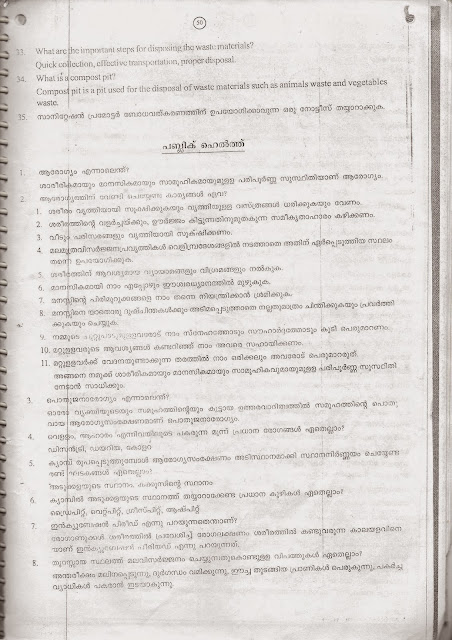 50
33. What are the important steps for disposing the waste materials?
Quick collection, effective transportation, proper disposal.
34. What is a compost pit?
Compost pit is a pit used for the disposal of waste materials such as animals waste and vegetables
waste.
35. സാനിറ്റേഷൻ പ്രമോട്ടർ ബോധവത്കരണത്തിന് ഉപയോഗിക്കാവുന്ന ഒരു നോട്ടീസ് തയ്യാറാക്കുക.
പബ്ലിക് ഹെൽത്ത്
1. ആരോഗ്യം എന്നാലെന്ത്?
ശാരീരികമായും മാനസികമായും സാമൂഹികമായുമുള്ള പരിപൂർണ്ണ സുസ്ഥിതിയാണ് ആരോഗ്യം.
2. ആരോഗ്യത്തിന് വേണ്ടി ചെയ്യേണ്ട കാര്യങ്ങൾ ഏവ?
1. ശരീരം വൃത്തിയായി സൂക്ഷിക്കുകയും വൃത്തിയുള്ള വസ്ത്രങ്ങൾ ധരിക്കുകയും വേണം.
2. ശരീരത്തിന്റെ വളർച്ചയ്ക്കും, ഊർജ്ജം കിട്ടുന്നതിനുതകുന്ന സമീകൃതാഹാരം കഴിക്കണം.
3. വീടും പരിസരങ്ങളും വൃത്തിയായി സൂക്ഷിക്കണം.
4. മലമൂത്രവിസർജ്ജനപ്രവൃത്തികൾ വെളിമ്പ്രദേശങ്ങളിൽ നടത്താതെ അതിന് ഏർപ്പെടുത്തിയ സ്ഥലം
തന്നെ ഉപയോഗിക്കുക.
5. ശരീരത്തിന് ആവശ്യമായ വ്യായാമങ്ങളും വിശ്രമങ്ങളും നൽകുക.
6. മാനസികമായി നാം എപ്പോഴും ഈശ്വരധ്യാനത്തിൽ മുഴുകുക.
7. മനസ്സിന്റെ പിരിമുറുക്കങ്ങളെ നാം തന്നെ നിയന്ത്രിക്കാൻ ശ്രമിക്കുക.
8. മനസ്സിനെ യാതൊരു ദുഃശ്ചിന്തകൾക്കും അടിമപ്പെടുത്താതെ നല്ലതുമാത്രം ചിന്തിക്കുകയും പ്രവർത്തി
ക്കുകയും ചെയ്യുക.
9. നമ്മുടെ ചുറ്റുപാടുമുള്ളവരോട് നാം സ്നേഹത്തോടും സൗഹാർദ്ദത്തോടും കൂടി പെരുമാറണം.
10. മറ്റുള്ളവരുടെ ആവശ്യങ്ങൾ കണ്ടറിഞ്ഞ് നാം അവരെ സഹായിക്കണം.
11. മറ്റുള്ളവർക്ക് വേദനയുണ്ടാക്കുന്ന തരത്തിൽ നാം ഒരിക്കലും അവരോട് പെരുമാറരുത്.
അങ്ങനെ നമുക്ക് ശാരീരികമായും മാനസികമായും സാമൂഹികവുമായുമുള്ള പരിപൂർണ്ണ സുസ്ഥിതി
നേടാൻ സാധിക്കും.
3. പൊതുജനാരോഗ്യം എന്നാലെന്ത്?
ഓരോ വ്യക്തിയുടെയും സമൂഹത്തിന്റെയും കൂട്ടായ ഉത്തരവാദിത്വത്തിൽ സമൂഹത്തിന്റെ പൊതു
വായ ആരോഗ്യസംരക്ഷണമാണ് പൊതുജനാരോഗ്യം.
4. വെള്ളം, ആഹാരം എന്നിവയിലൂടെ പകരുന്ന മൂന്ന് പ്രധാന രോഗങ്ങൾ ഏതെല്ലാം?
ഡിസൻട്രി, ഡയറിയ, കോളറ
5. ക്യാമ്പ് രൂപപ്പെടുത്തുമ്പോൾ ആരോഗ്യസംരക്ഷണം അടിസ്ഥാനമാക്കി സ്ഥാനനിർണ്ണയം ചെയ്യേണ്ട
രണ്ട് ഘടകങ്ങൾ ഏതെല്ലാം?
അടുക്കളയുടെ സ്ഥാനം, കക്കൂസിന്റെ സ്ഥാനം
6. ക്യാമ്പിൽ അടുക്കളയുടെ സ്ഥാനത്ത് തയ്യാറാക്കേണ്ട പ്രധാന കുഴികൾ ഏതെല്ലാം?
ഡ്രൈപിറ്റ്, വെറ്റ്പിറ്റ്, ഗ്രീസ്പിറ്റ്, ആഷ്പിറ്റ്
7. ഇൻക്യുബേഷൻ പിരീഡ് എന്നു പറയുന്നതെന്താണ്?
രോഗാണുക്കൾ ശരീരത്തിൽ പ്രവേശിച്ച് രോഗലക്ഷണം ശരീരത്തിൽ കണ്ടുവരുന്ന കാലയളവിനെ
യാണ് ഇൻക്യുബേഷൻ പിരീയഡ് എന്നു പറയുന്നത്.
8. തുറസ്സായ സ്ഥലത്ത് മലവിസർജനം ചെയ്യുന്നതുകൊണ്ടുള്ള വിപത്തുകൾ ഏതെല്ലാം?
അന്തരീക്ഷം മലിനപ്പെടുന്നു, ദുർഗന്ധം വമിക്കുന്നു, ഈച്ച തുടങ്ങിയ പ്രാണികൾ പെരുകുന്നു, പകർച്ച
വ്യാധികൾ പകരാൻ ഇടയാകുന്നു.